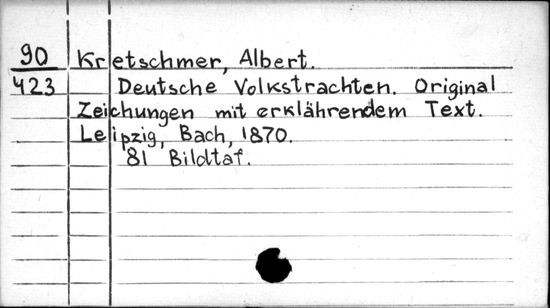 90 Kretschmer, Albert.
423 Deutsche Volkstrachten. Original
Zeichungen mit erklährendem Text.
Leipzig, Bach, 1870.
81 Bildtaf.